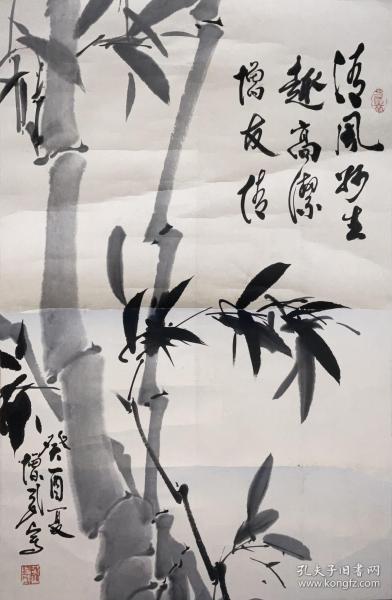 清风妙生
趣高潔
增友情
癸酉夏
增写
孔夫子旧书网
www.kongfz.com